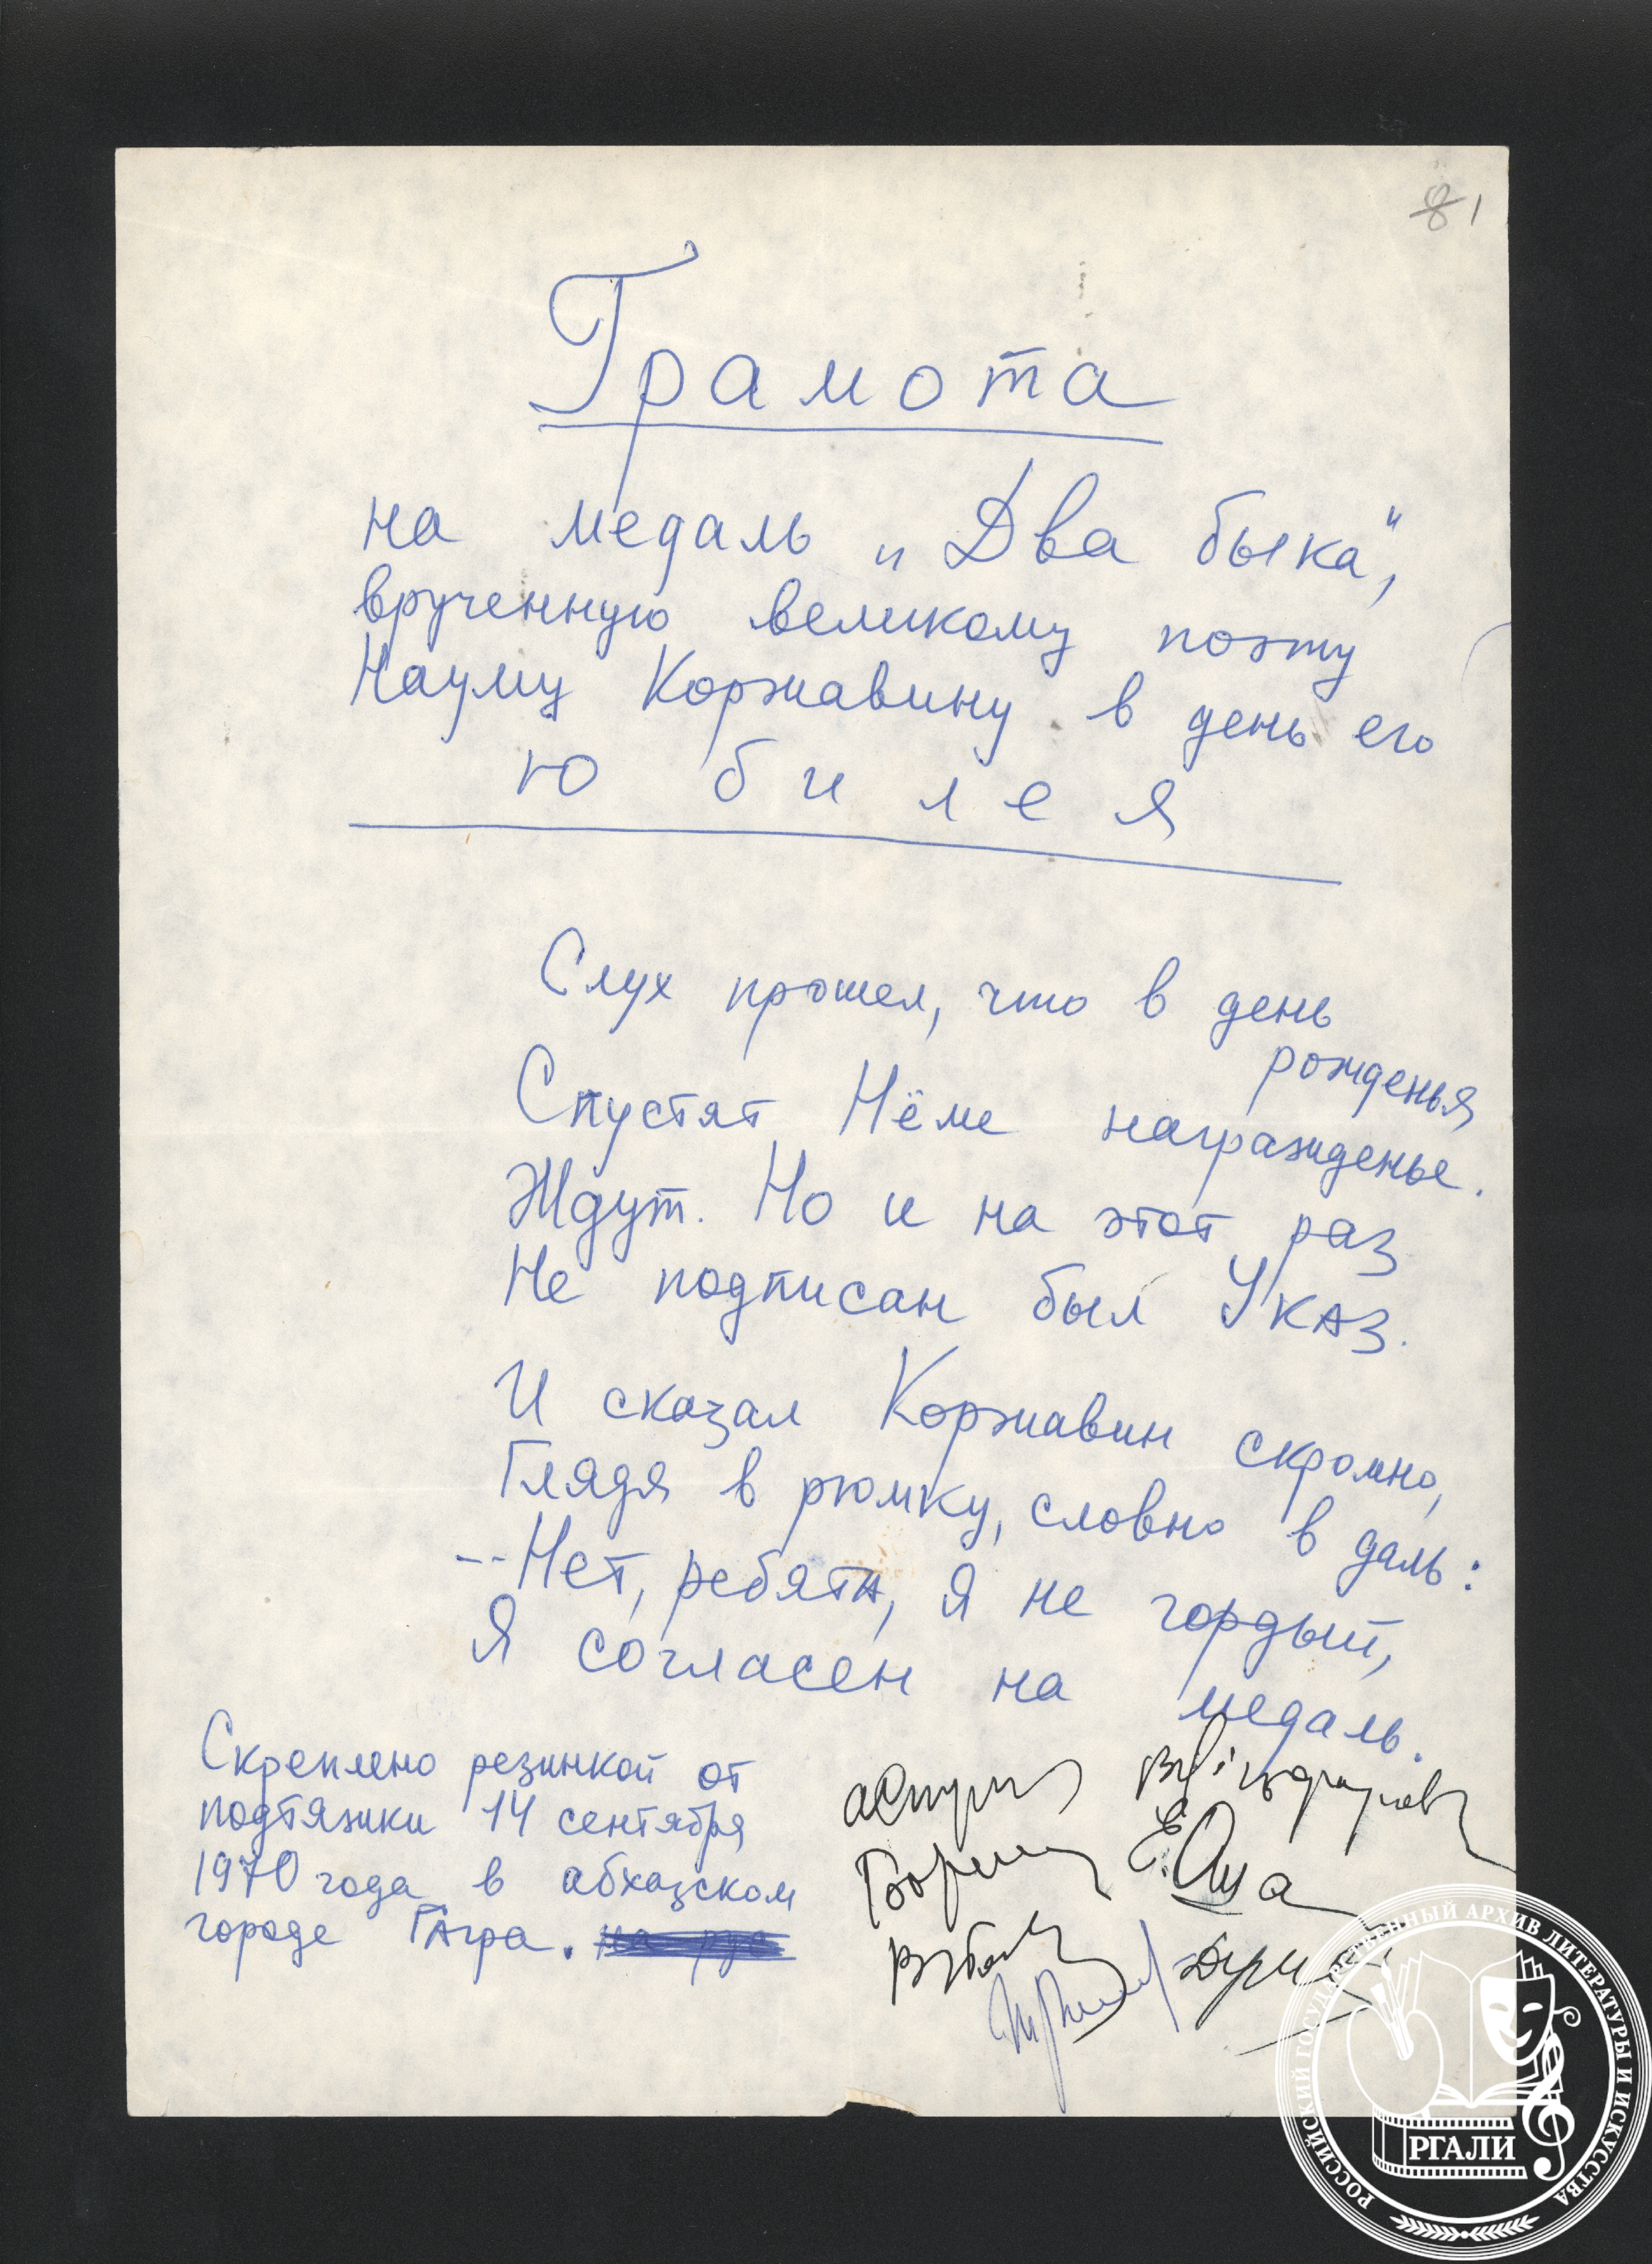 81
Грамота
на медаль „Два быка",
врученную великому поэту
Науму Коржавину в день его
юбилея
Слух прошел, что в день
рожденья
Спустят Нёме награжденье.
Ждут. Но и на этот раз
Не подписан был Указ.
И сказал Коржавин скромно,
Глядя в рюмку, словно в даль:
-- Нет, ребята, я не гордый,
Я согласен на медаль.
Скреплено резинкой от
подтяжки 14 сентября
1970 года в абхазском
городе Гагра.
РОССИЙСКИЙ ГОСУДАРСТВЕННЫЙ АРХИВ ЛИТЕРАТУРЫ И ИСКУССТВА
РГАЛИ